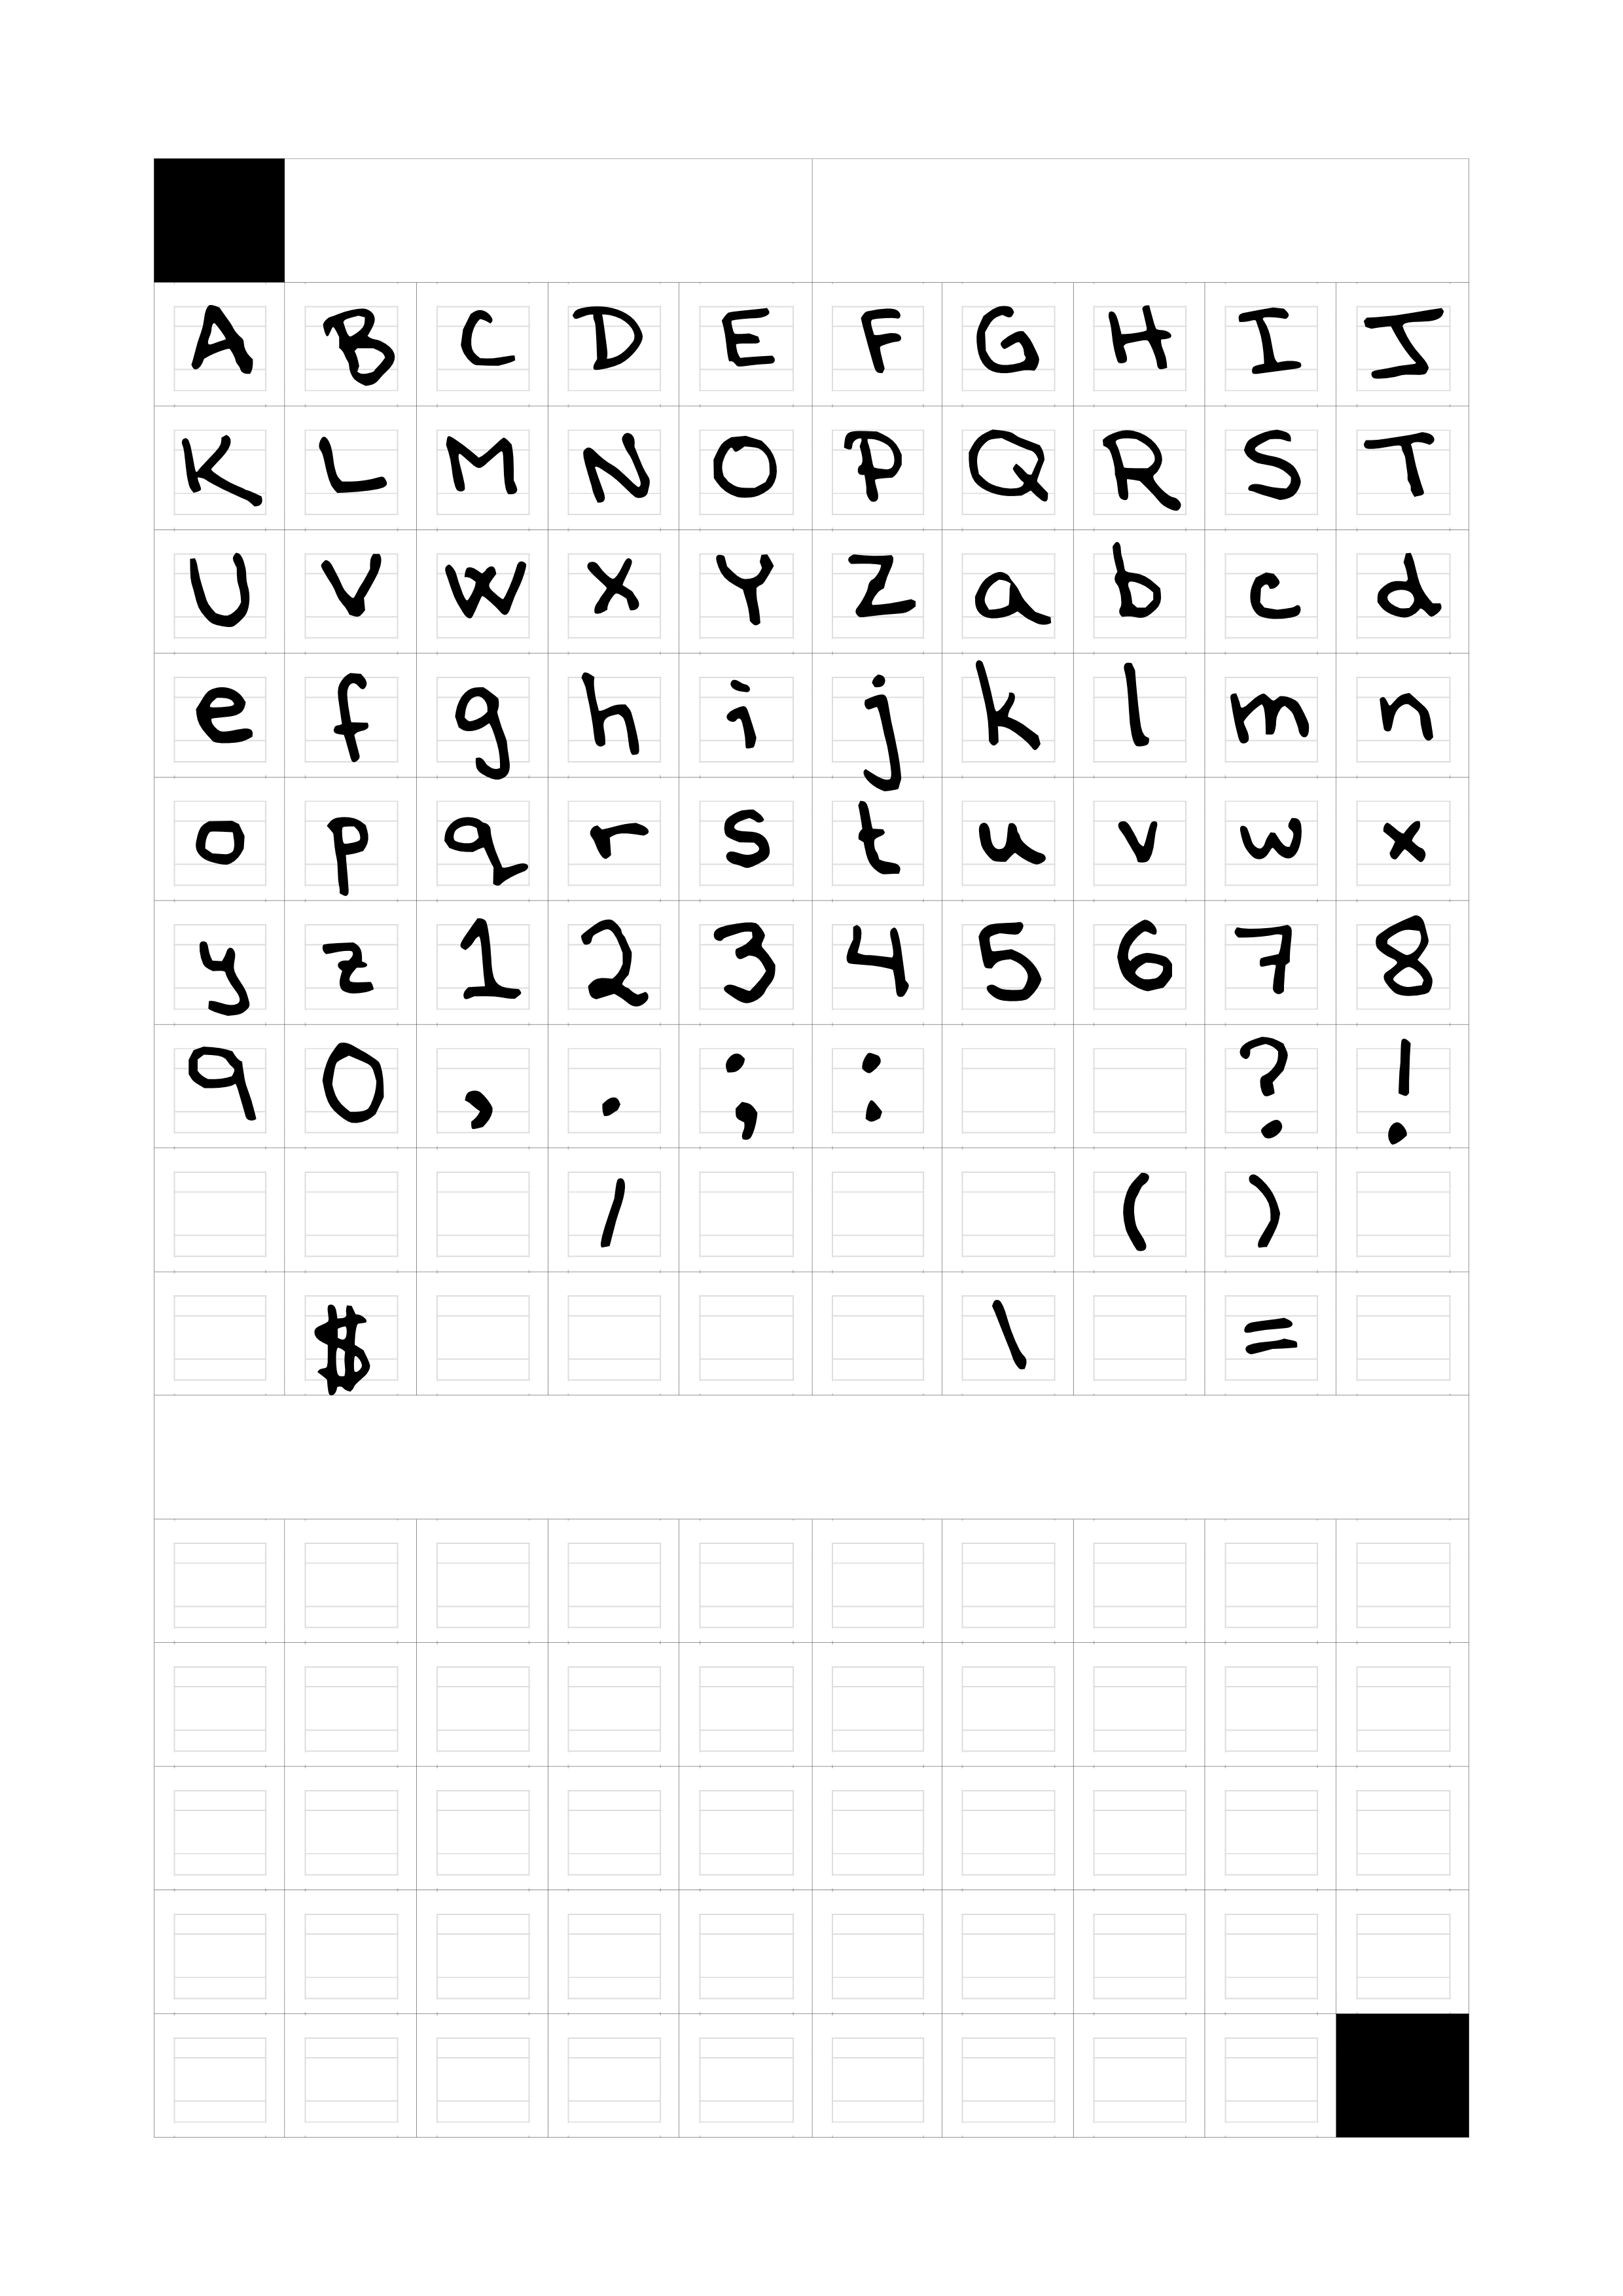 A B C D E F G H I J
K L M N O P Q R S T
U V W X Y Z a b c d
e f g h i j k l m n
o p q r s t u v w x
y z 1 2 3 4 5 6 7 8
9 0 , . ; : ? !
/ ( )
$ \ =